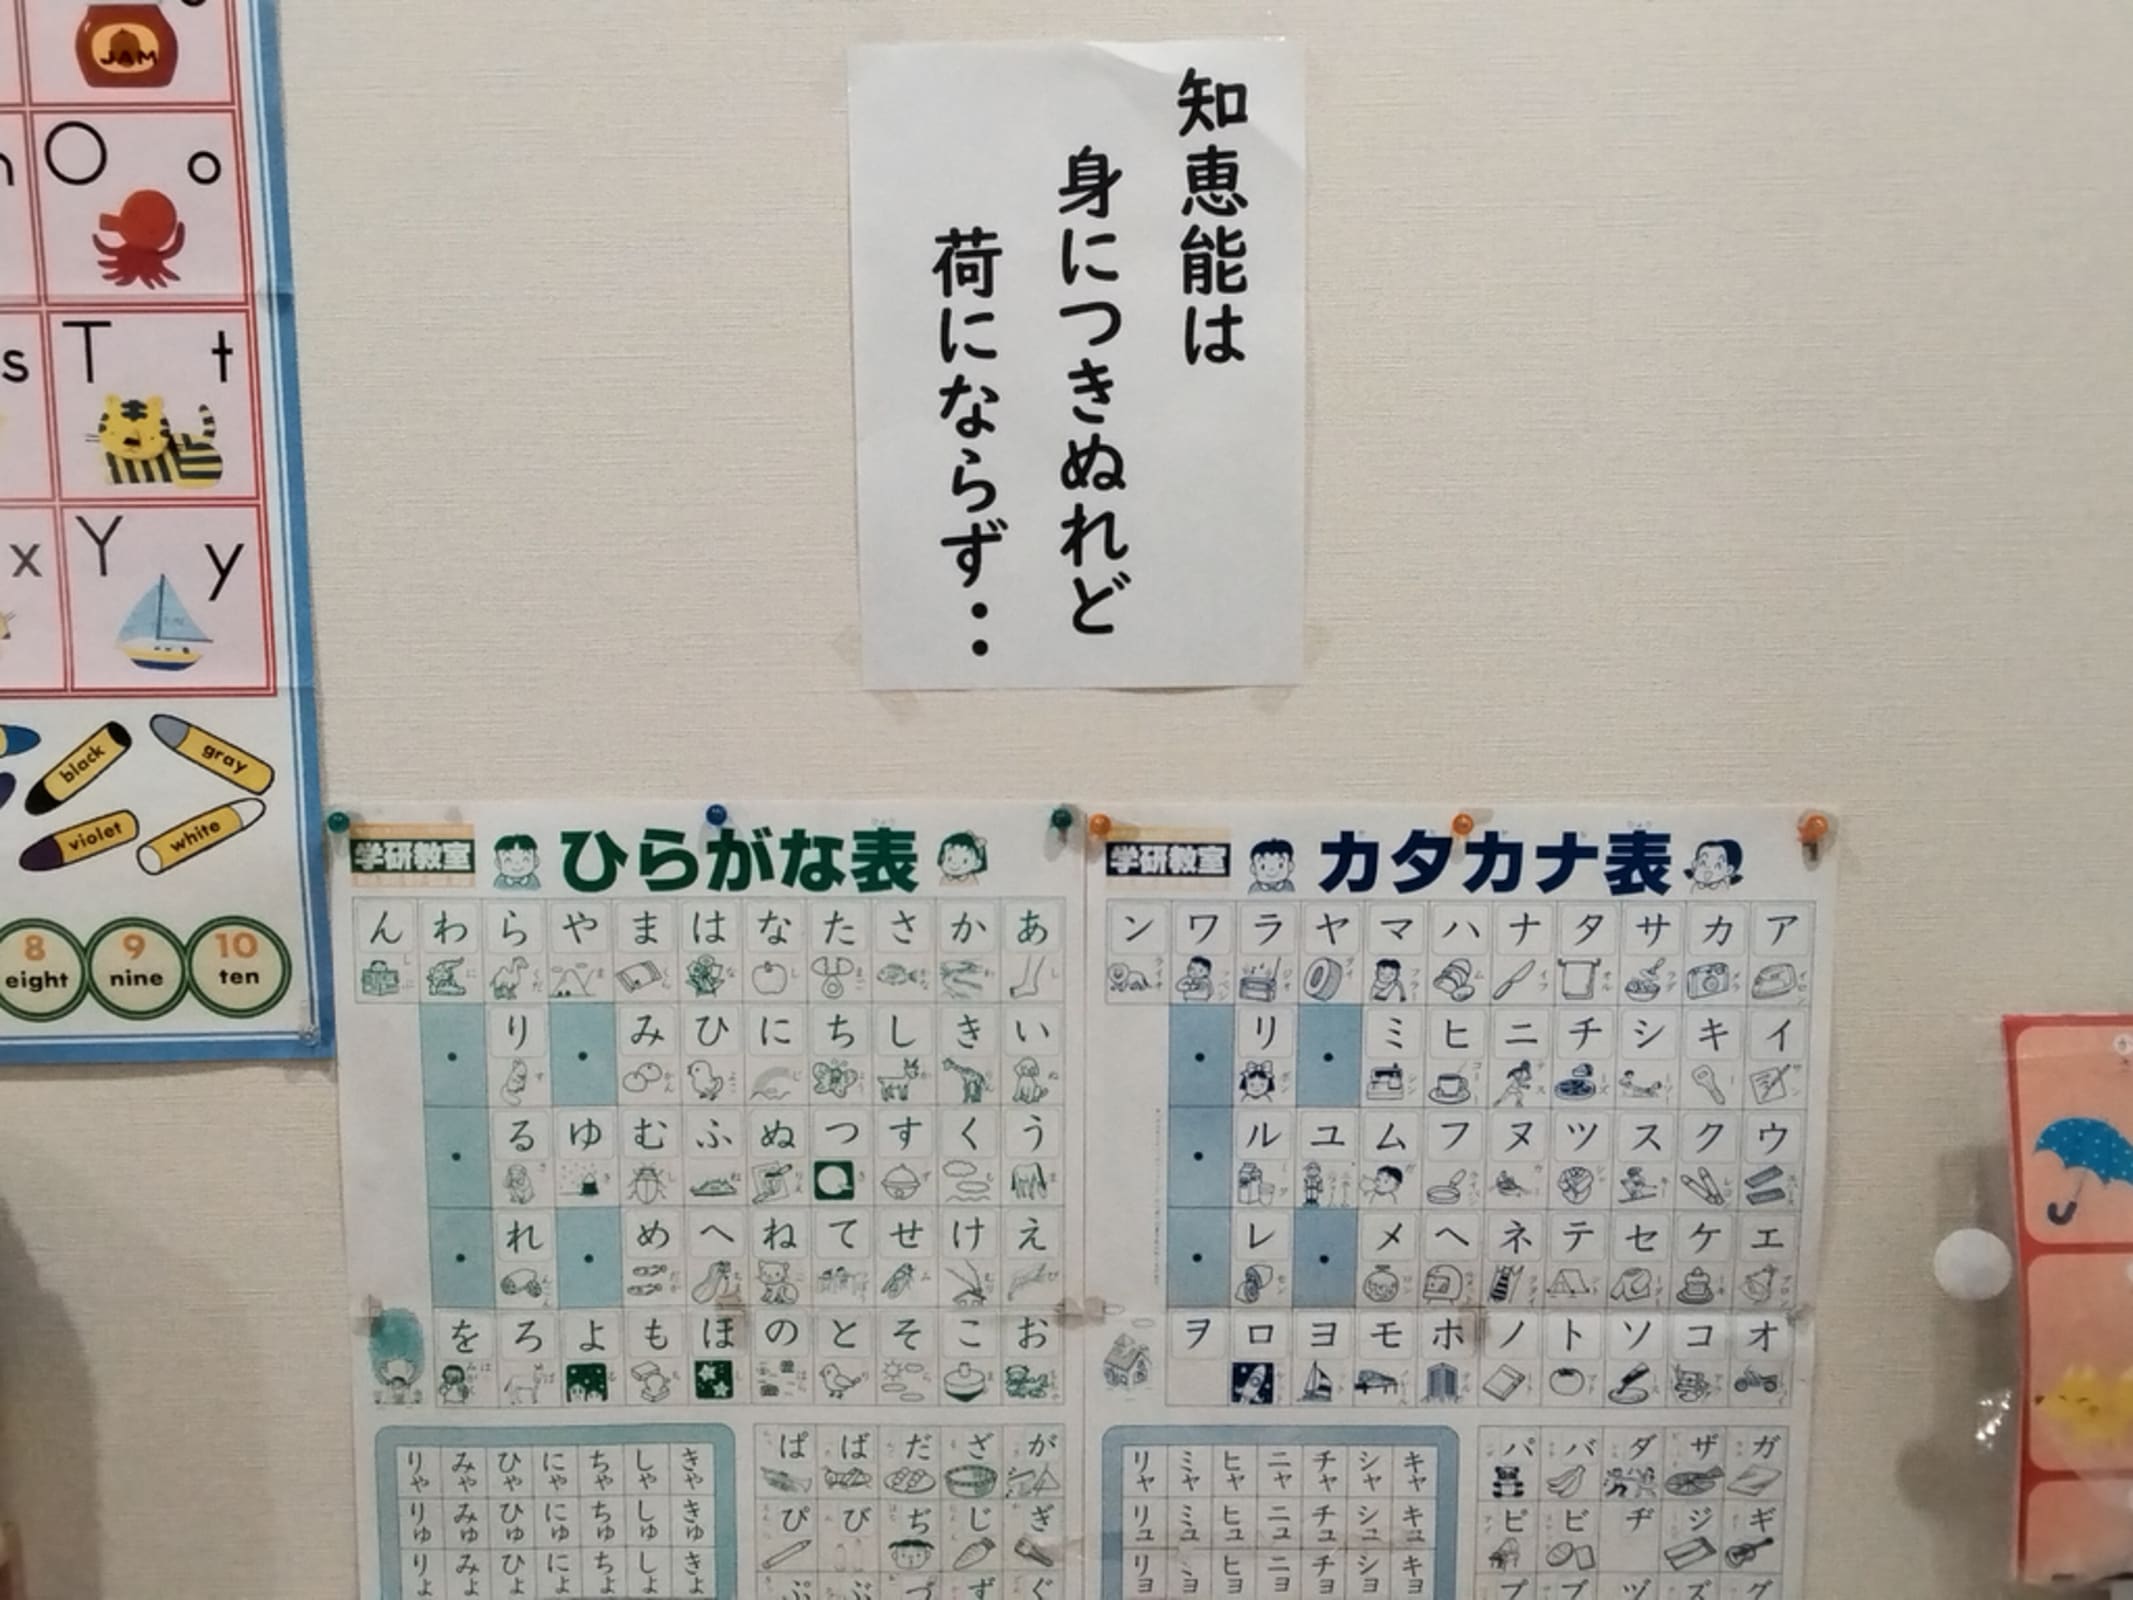 知恵能は
身につきぬれど
荷にならず・・
JAM
O o
s T t
x Y y
black
gray
violet
white
8 9 10
eight nine ten
学研教室
ひらがな表
んわらやまはなたさかあ
・り・みひにちしきい
・るゆむふぬつすくう
・れ・めへねてせけえ
をろよもほのとそこお
りゃ みゃ ひゃ にゃ ちゃ しゃ きゃ
りゅ みゅ ひゅ にゅ ちゅ しゅ きゅ
りょ みょ ひょ にょ ちょ しょ きょ
ぱ ば だ ざ が
ぴ び ぢ じ ぎ
ぷ ぶ づ ず ぐ
学研教室
カタカナ表
ンワラヤマハナタサカア
・リ・ミヒニチシキイ
・ルユムフヌツスクウ
・レ・メヘネテセケエ
ヲロヨモホノトソコオ
リャ ミャ ヒャ ニャ チャ シャ キャ
リュ ミュ ヒュ ニュ チュ シュ キュ
リョ ミョ ヒョ ニョ チョ ショ キョ
パ バ ダ ザ ガ
ピ ビ ヂ ジ ギ
プ ブ ヅ ズ グ